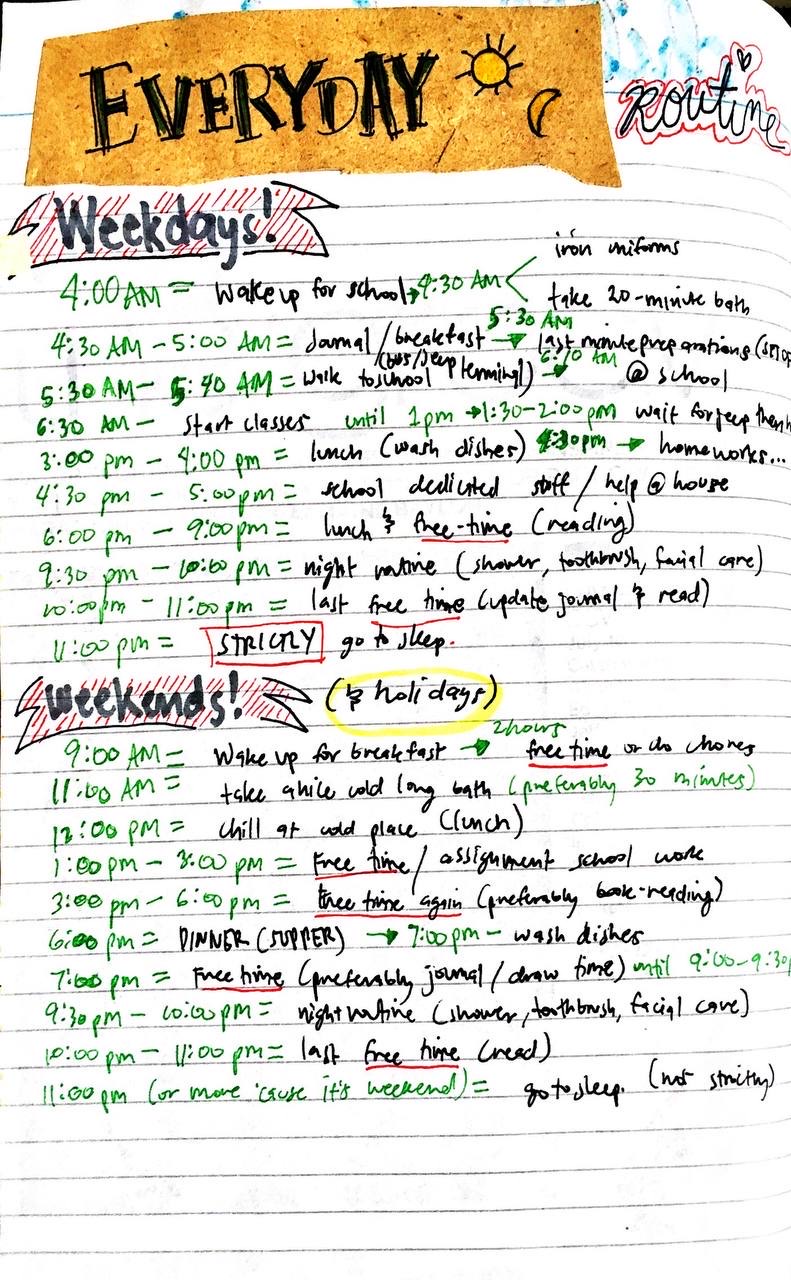 EVERYDAY
Routine
Weekdays!
4:00 AM = Wake up for school → 4:30 AM < iron uniforms
take 20-minute bath
4:30 AM - 5:00 AM = Journal / breakfast → 5:30 AM last minute preparations
5:30 AM - 5:40 AM = Walk to school (bus/jeep terminal) → 6:10 AM @ school
6:30 AM - Start classes until 1 pm → 1:30-2:00 pm wait for jeep then
3:00 pm - 4:00 pm = lunch (wash dishes) 4:30 pm → homeworks...
4:30 pm - 5:00 pm = school dedicated stuff / help @ house
6:00 pm - 9:00 pm = lunch & free-time (reading)
9:30 pm - 10:00 pm = night routine (shower, toothbrush, facial care)
10:00 pm - 11:00 pm = last free time (update journal & read)
11:00 pm = STRICTLY go to sleep.
Weekends! (& holidays)
9:00 AM = Wake up for breakfast → 2 hours free time or do chores
11:00 AM = take a nice cold long bath (preferably 30 minutes)
12:00 PM = chill at cold place (lunch)
1:00 pm - 3:00 pm = Free time / assignment school work
3:00 pm - 6:00 pm = Free time again (preferably book-reading)
6:00 pm = DINNER (SUPPER) → 7:00 pm - wash dishes
7:00 pm = Free time (preferably journal / draw time) until 9:00-9:30
9:30 pm - 10:00 pm = night routine (shower, toothbrush, facial care)
10:00 pm - 11:00 pm = last free time (read)
11:00 pm (or more 'cause it's weekend) = go to sleep. (not strictly)